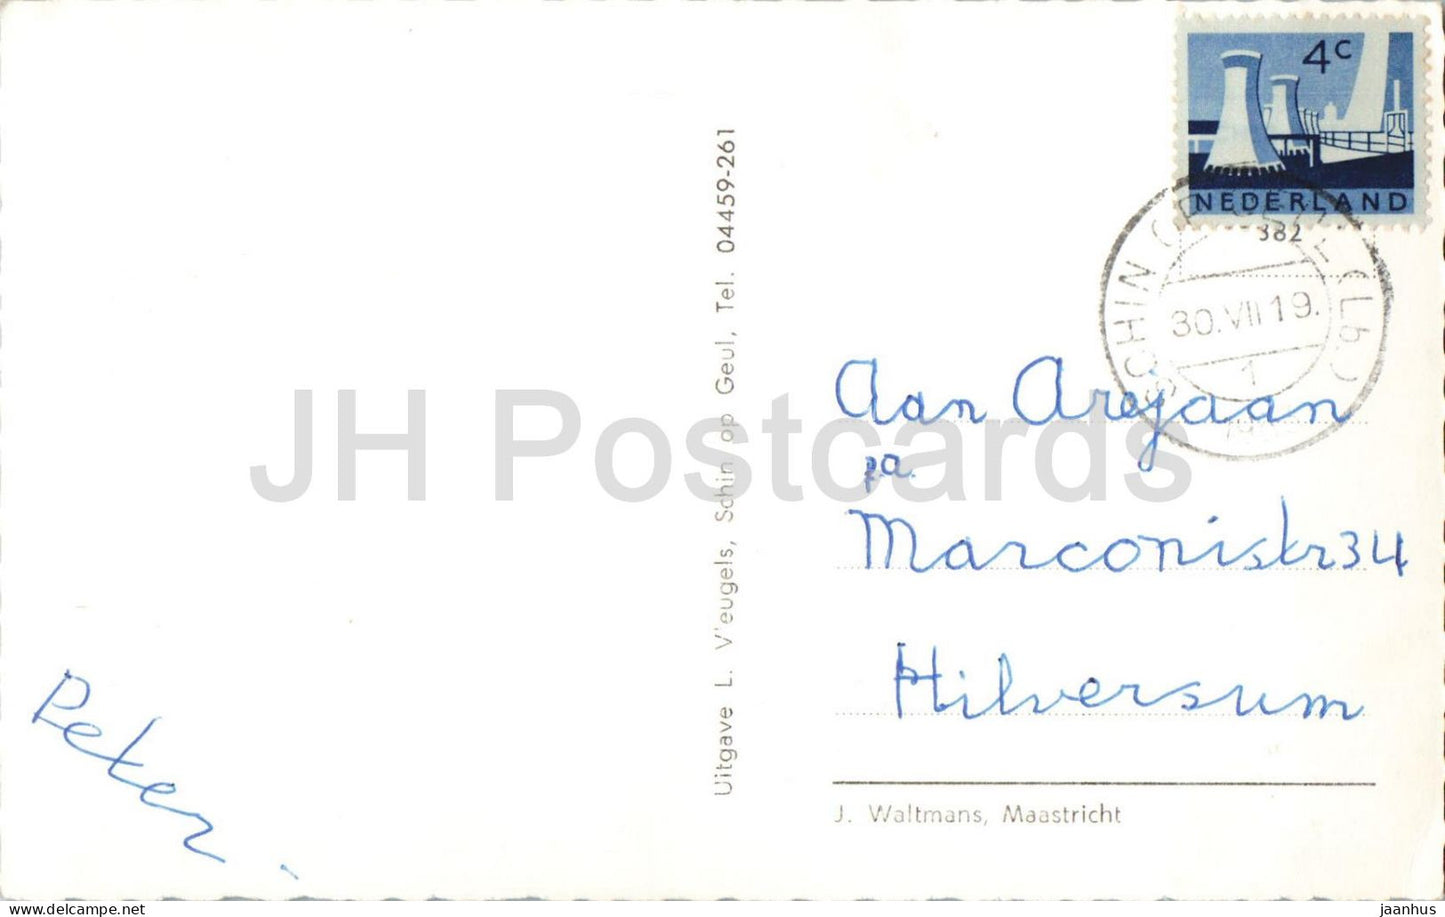 4c
NEDERLAND
382
SCHIN OP GEUL (Lb)
30.VII 19.
1
Uitgave L. V'eugels, Schin op Geul, Tel. 04459-261
Aan Arejaan
pa.
Marconistr 34
Hilversum
Peter.
J. Waltmans, Maastricht
JH Postcards
delcampe.net
jaanhus